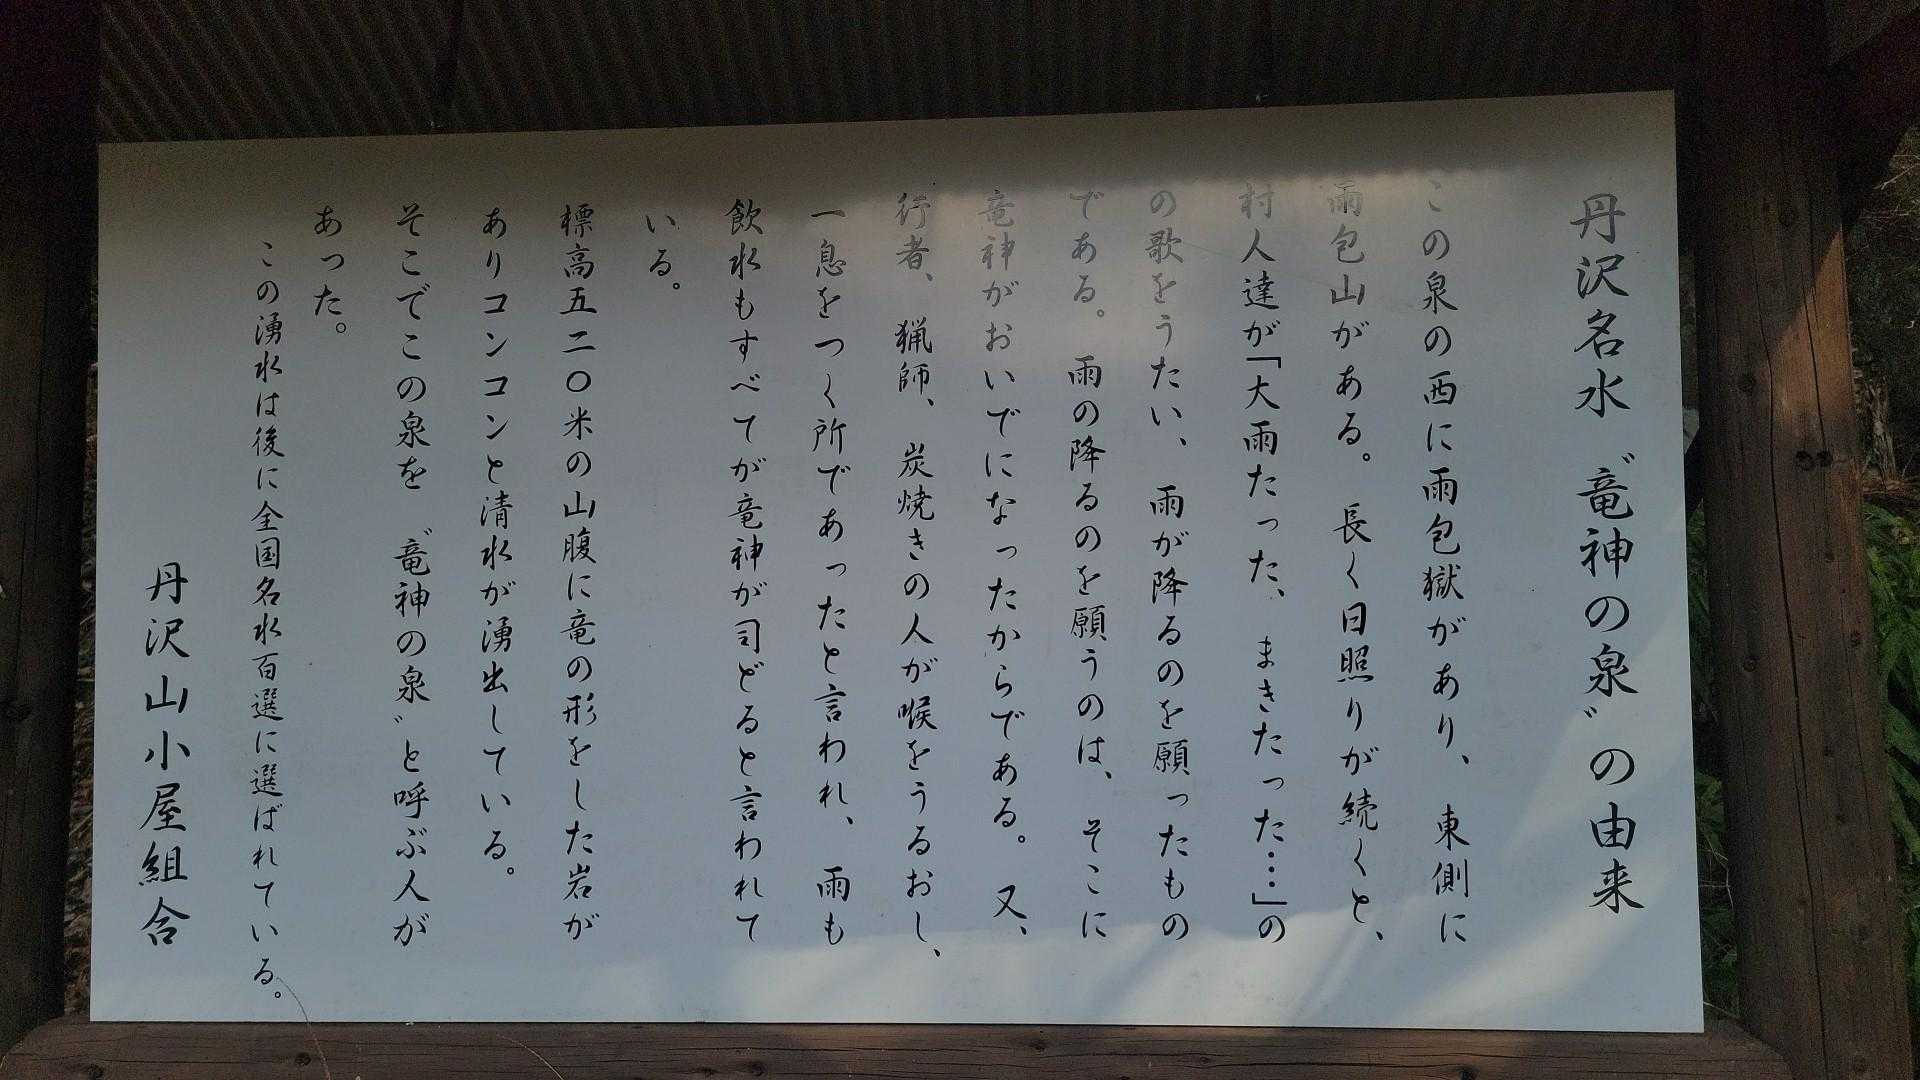 丹沢名水〝竜神の泉〟の由来
この泉の西に雨包獄があり、東側に
雨包山がある。長く日照りが続くと、
村人達が「大雨たった、またきたった…」の
の歌をうたい、雨が降るのを願ったもの
である。雨の降るのを願うのは、そこに
竜神がおいでになったからである。又、
行者、猟師、炭焼きの人が喉をうるおし、
一息をつく所であったと言われ、雨も
飲水もすべてが竜神が司どると言われて
いる。
標高五二〇米の山腹に竜の形をした岩が
ありコンコンと清水が湧出している。
そこでこの泉を〝竜神の泉〟と呼ぶ人が
あった。
この湧水は後に全国名水百選に選ばれている。
丹沢山小屋組合